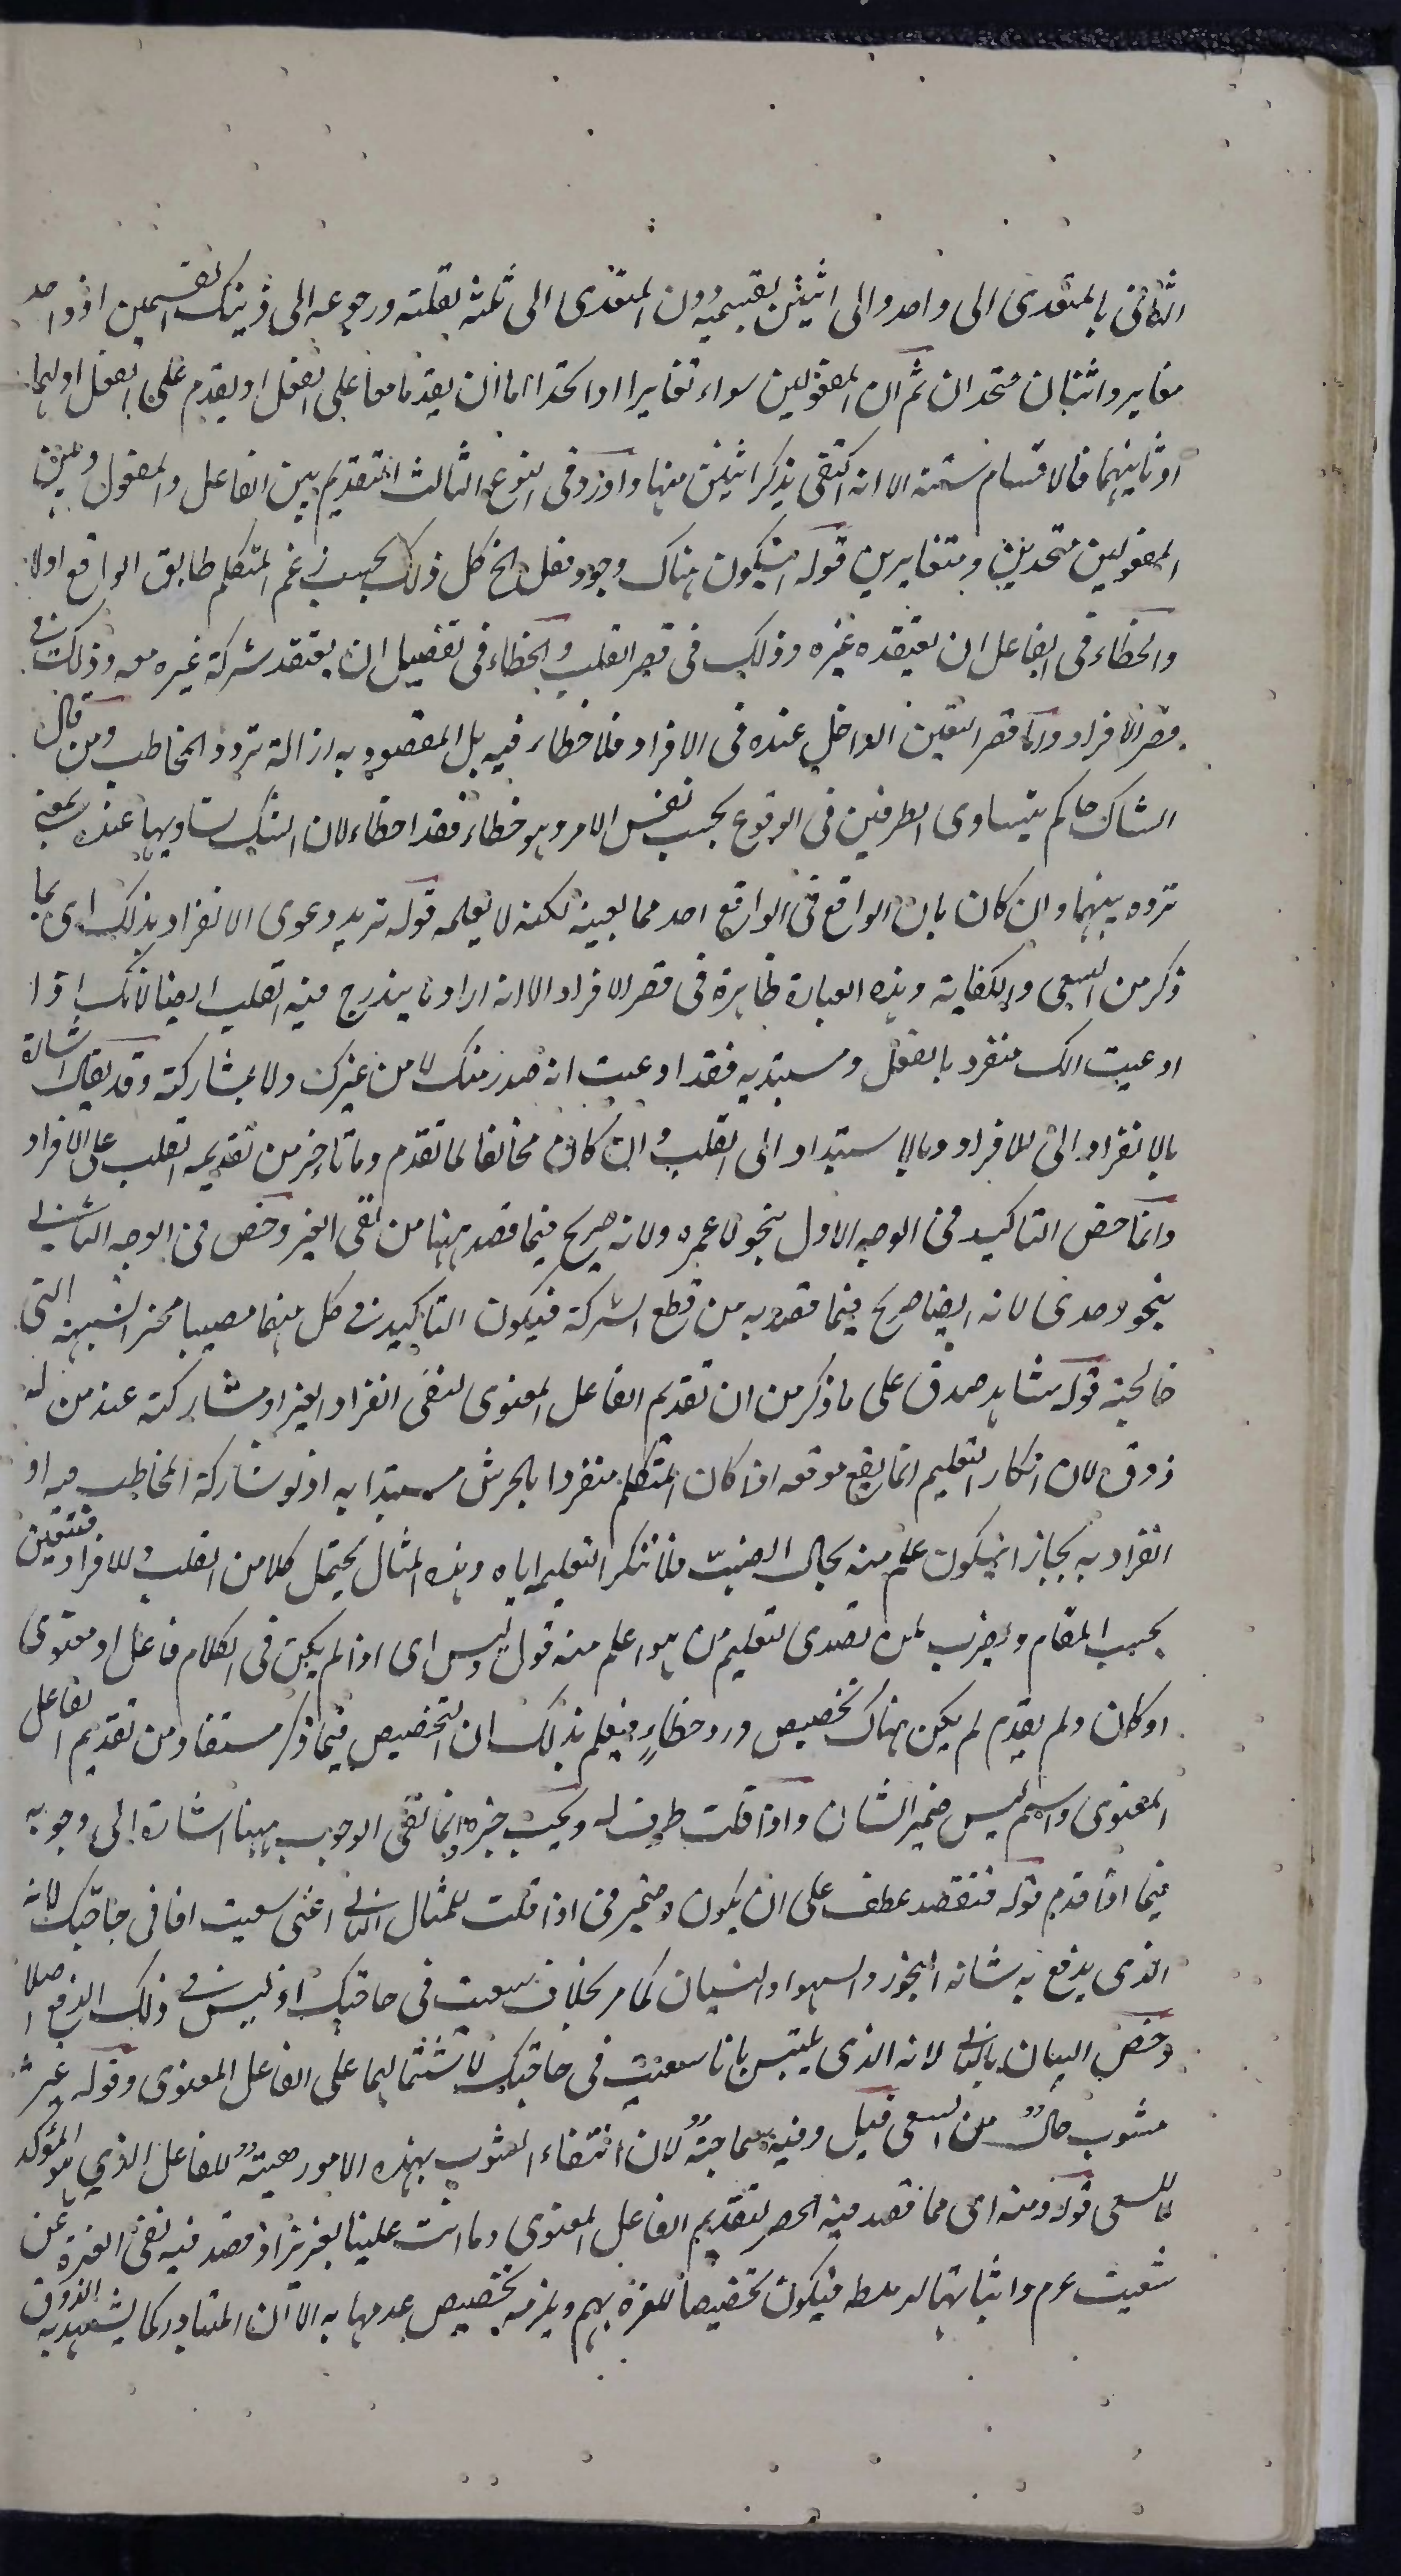 الثانى بالمتعدى الى واحد والى اثنين بقسميه دون المتعدى الى ثلثة لقلته ورجوعه الى ذينك القسمين اذ واحد
مغاير واثنان متحدان ثم ان المفعولين سواء تغايرا او اتحدا اما ان يقدما معا على الفعل او يقدم على الفعل اولهما
او ثانيهما فالاقسام ستة الا انه اكتفى بذكر اثنين منها واورد فى النوع الثالث التقديم بين الفاعل والمفعول وبين
المفعولين متحدين ومتغايرين قوله ان يكون هناك وجود فعل الخ كل ذلك بحسب زعم المتكلم طابق الواقع اولا
والخطاء فى الفاعل ان يعتقده غيره وذلك فى قصر القلب والخطاء فى تفصيل ان يعتقد شركة غيره معه وذلك فى
قصر الافراد واما قصر التعين الداخل عنده فى الافراد فلا خطاء فيه بل المقصود به ازالة تردد المخاطب ومن قال
الشاك حاكم بتساوى الطرفين فى الوقوع بحسب نفس الامر وهو خطاء فقد اخطاء لان الشك تساويهما عنده بمعنى
تردده بينهما وان كان بان الواقع فى الواقع احدهما بعينه لكنه لا يعلمه قوله تريد دعوى الانفراد بذلك اى بما
ذكر من السعى والكفاية وهذه العبارة ظاهرة فى قصر الافراد الا انه اراد ما يندرج فيه القلب ايضا لانك اذا
ادعيت انك منفرد بالفعل ومستبد به فقد ادعيت انه صدر منك لا من غيرك ولا بمشاركته وقد يقال اشارة
بالانفراد الى الافراد وبالاستبداد الى القلب وان كان مخالفا لما تقدم وما تاخر من تقديمه القلب على الافراد
وانما خص التاكيد فى الوجه الاول بنحو لا عمرو ولانه صريح فيما قصد ههنا من نفى الغير وخص فى الوجه الثانى
بنحو وحدى لانه ايضا صريح فيما قصد به من قطع الشركة فيكون التاكيد فى كل منهما مصيبا محز الشبهة التى
خالجته قوله شاهد صدق على ما ذكر من ان تقديم الفاعل المعنوى لنفى انفراد الغير او مشاركته عند من له
ذوق لان انكار التعليم انما يقع موقعه اذا كان المتكلم منفردا بالحرش مستبدا به اذ لو شاركه المخاطب فيه او
انفرد به لجاز ان يكون علم منه بحال الضب فلا ننكر التعليم اياه وهذه المثال يحتمل كلا من القلب والافراد فيتعين
بحسب المقام ويضرب لمن تصدى لتعليم من هو اعلم منه قوله وليس اى اذا لم يكن فى الكلام فاعل او معنوى
او كان ولم يقدم لم يكن هناك تخصيص ورد خطاء فيعلم بذلك ان التخصيص فيما ذكر مستفاد من تقديم الفاعل
المعنوى واسم ليس ضمير الشان واذا قلت ظرف له ويجب خبره وانما نفى الوجوب ههنا اشارة الى وجوبه
فيما اذا قدم قوله فتقصد عطف على ان يكون وضمير فى اذا قلت للمثال الثانى اعنى سعيت انا فى حاجتك لانه
الذى يدفع به شائبة التجوز والسهو والنسيان كما مر بخلاف سعيت فى حاجتك اذ ليس فى ذلك الدفع اصلا
وخص البيان بالثانى لانه الذى يلتبس بانا سعيت فى حاجتك لاشتمالهما على الفاعل المعنوى وقوله غير
مشوب حال من السعى قيل وفيه سماجة لان انتفاء الشوب بهذه الامور هيئة للفاعل الذى هو المؤكد
لا للسعى قوله ومنه اى مما قصد فيه الحصر لتقديم الفاعل المعنوى وما انت علينا بعزيز اذ قصد فيه نفى العزة عن
شعيب عم واثباتها لرهطه فيكون تخصيصا للعزة بهم ويلزمه تخصيص عدمها به الا ان المتبادر كما يشهد به الذوق